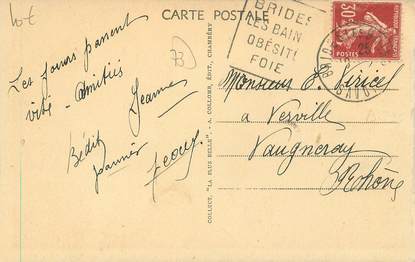 10 €
CARTE POSTALE
73
BRIDES
LES BAINS
OBÉSITÉ
FOIE
30c
POSTES
Les jours passent
vite - Amitiés
Jeanne
Monsieur J. Viricel
a Yerville
Vaugneray
Rhône
COLLECT. "LA PLUS BELLE". - A. COLLOMB, ÉDIT., CHAMBÉRY